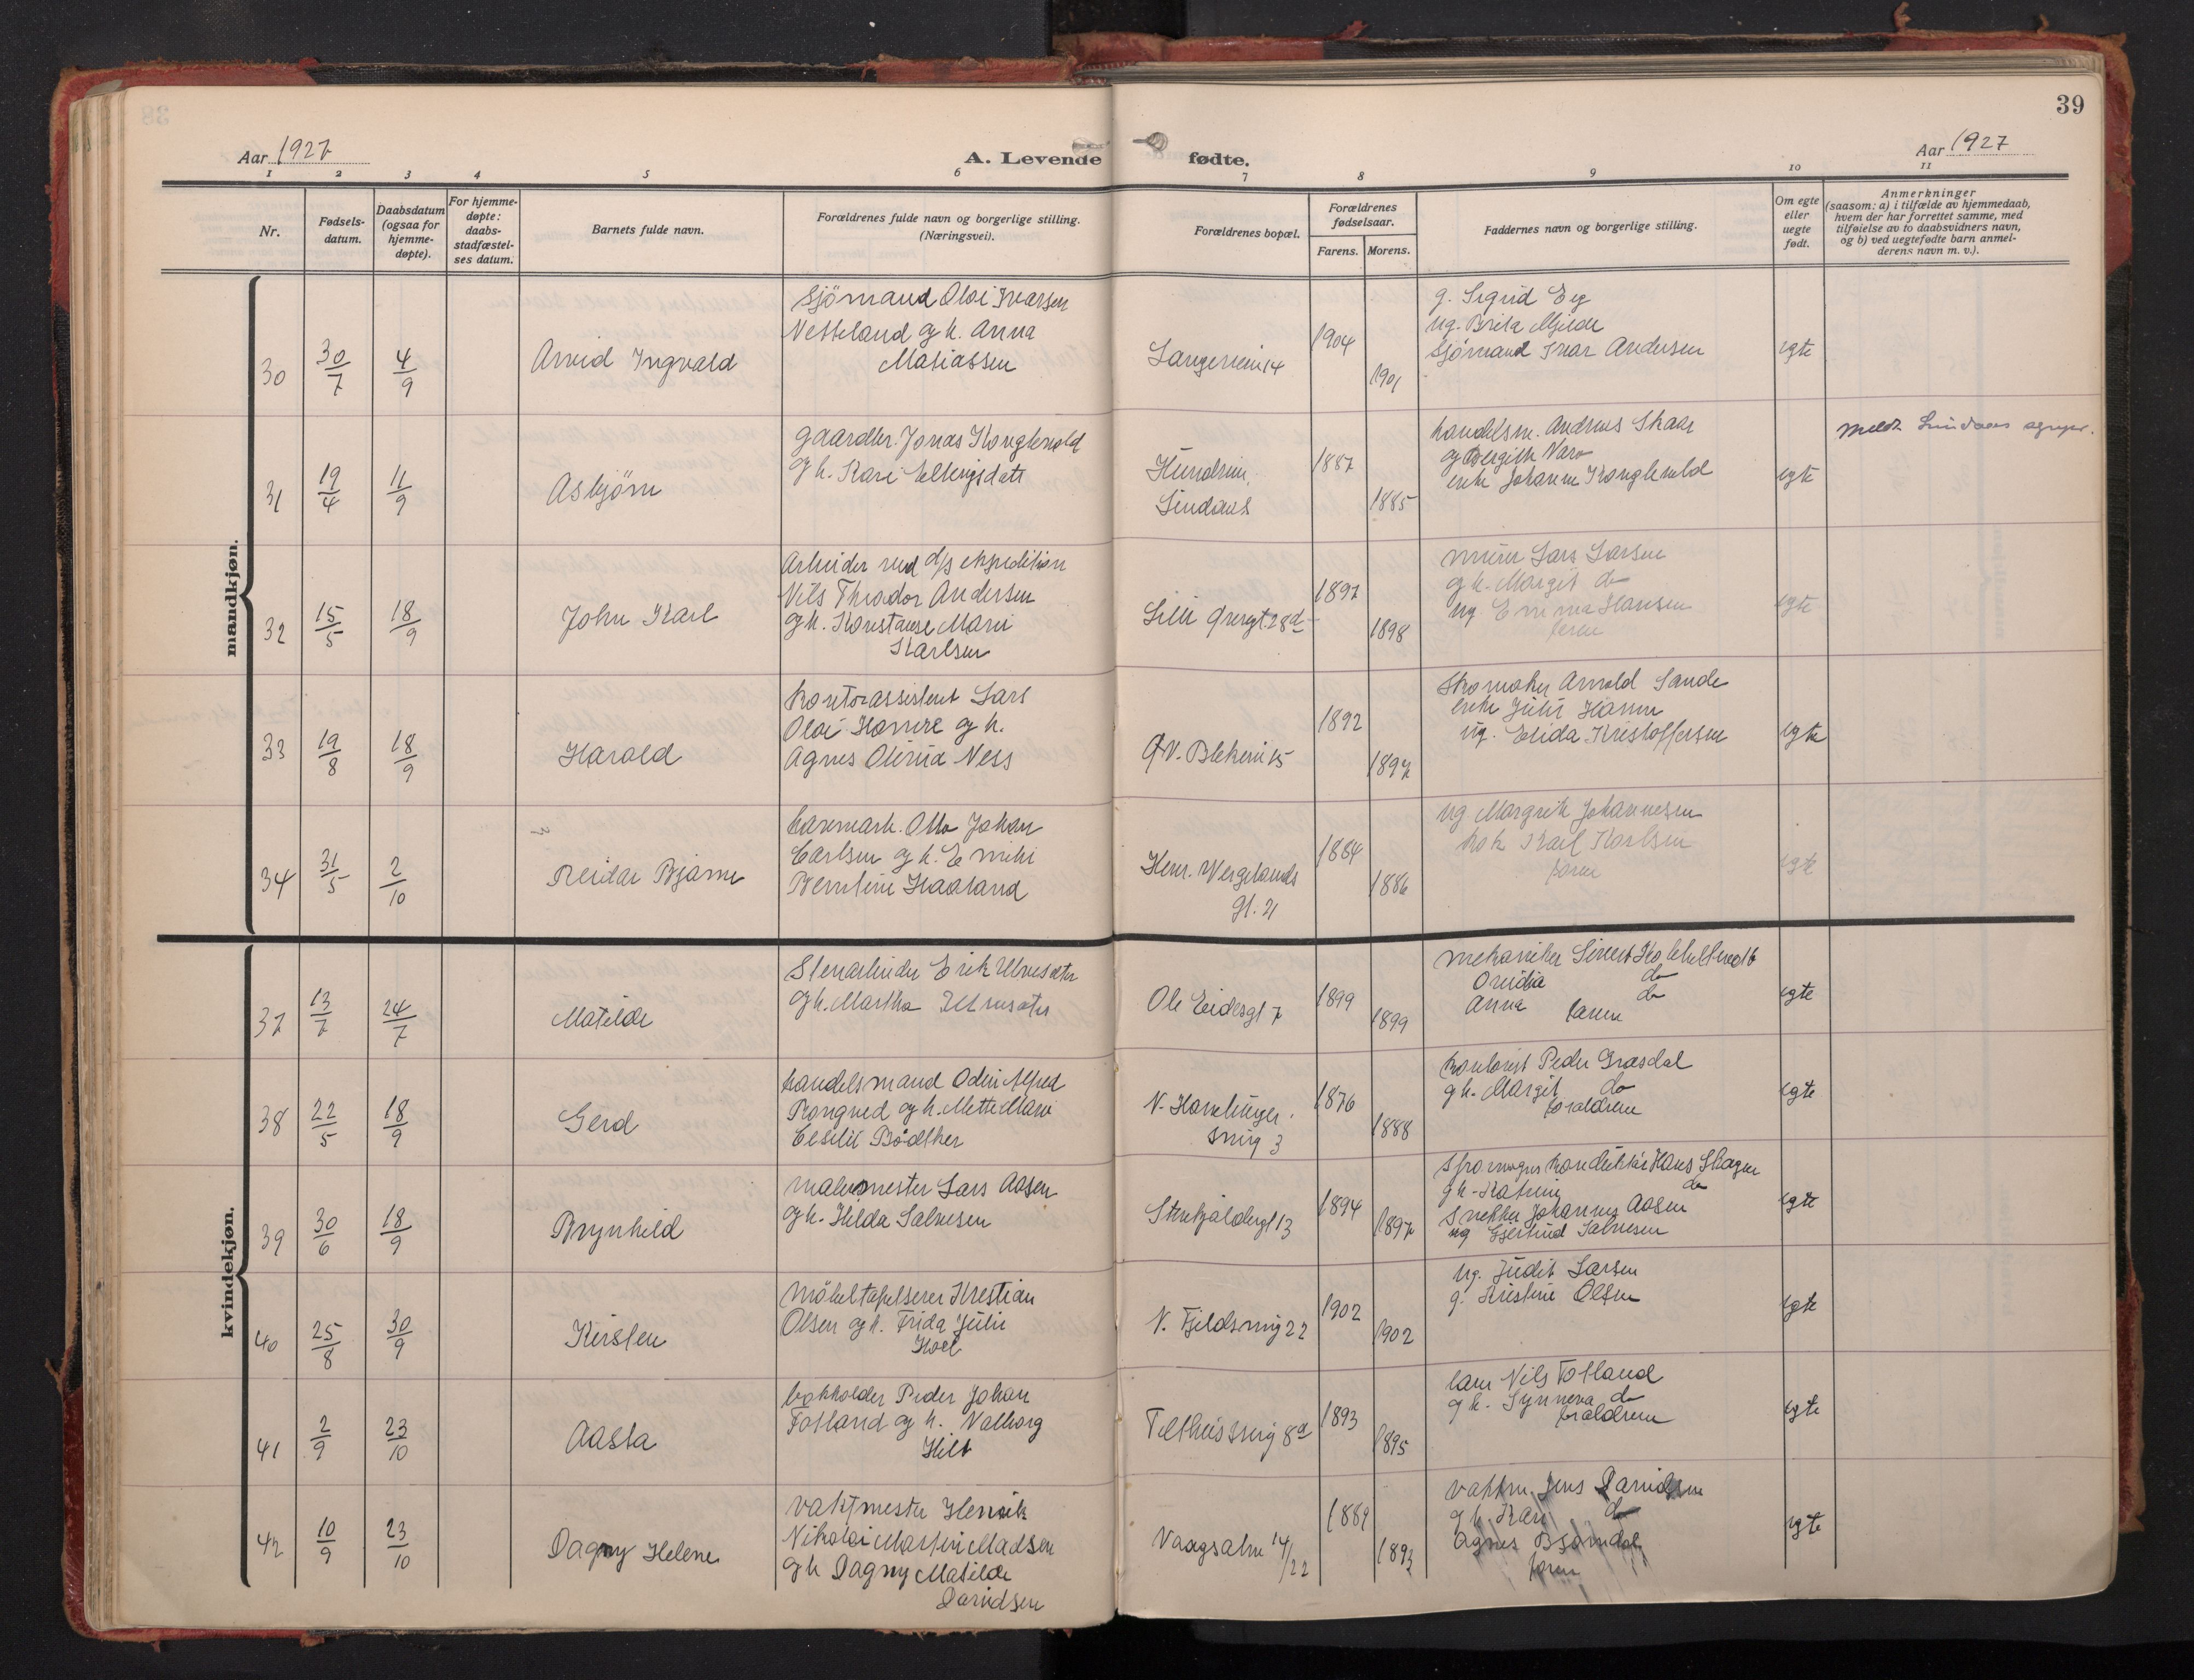 39
Aar 1927
A. Levende fødte.
Aar 1927
1 2 3 4 5 6 7 8 9 10 11
Nr.
Fødsels-
datum.
Daabsdatum
(ogsaa for
hjemme-
døpte).
For hjemme-
døpte:
daabs-
stadfæstel-
ses datum.
Barnets fulde navn.
Forældrenes fulde navn og borgerlige stilling.
(Næringsvei).
Forældrenes bopæl.
Forældrenes
fødselsaar.
Farens. Morens.
Faddernes navn og borgerlige stilling.
Om egte
eller
uegte
født.
Anmerkninger
(saasom: a) i tilfælde av hjemmedaab,
hvem der har forrettet samme, med
tilføielse av to daabsvidners navn,
og b) ved uegtefødte barn anmel-
derens navn m. v.).
mandkjøn.
30 30/7 4/9 Arvid Ingvald
Sjömand Olai Ivarsen
Nesseland og h. Anna
Matiassen
14
1904
1901
g. Sigrid Eig
ug. Brita Mjelde
Sjömand Ivar Andersen
egte
31 19/4 11/9 Asbjörn
gaardbr. Jonas Konglevold
og h. Kari
Lindaas
1887
1885
handelsm. Andreas Skaar
og Bergith
enke Johanne Konglevold
egte
Meldt Lindaas sognepr.
32 15/5 18/9 John Karl
Arbeider ved d/s ekspedition
Nils Theodor Andersen
og h. Konstanse Marie
Karlsen
28d
1897
1898
murer Lars Larsen
og h. Margit do
ug Emma Hansen
faren
egte
33 19/8 18/9 Harald
Kontorassistent Lars
Olai Hamre og h.
Agnes Olivia Ness
15
1892
1897
Skomaker Arnold Sande
enke Julie Hamre
ug. Elida Kristoffersen
egte
34 31/5 2/10 Reidar Bjarne
Otto Johan
Carlsen og h. Emilie
Berntine Haaland
Henr. Wergelands
gt. 21
1884
1886
ug Margrete Johannesen
kok Karl Karlsen
faren
egte
kvindekjøn.
37 13/7 24/7 Matilde
Stenarbeider Erik Ulvesæter
og h. Martha Ulvesæter
Ole Eidesgt 7
1899
1899
mekaniker Sivert
Ovidia do
Anna do
faren
egte
38 22/5 18/9 Gerd
handelsmand Odin Alfred
Rongved og h. Mette Marie
Cecilie Bödtker
smug 3
1876
1888
kontorist Peder Græsdal
og h. Margit do
foræld­rene
egte
39 30/6 18/9 Brynhild
malermester Lars Aasen
og h. Hilda Salvesen
13
1894
1897
sporvogns konduktör Hans Skagen
g h. Katrine do
Snekker Johannes Aasen
ug Gjertrud Salvesen
egte
40 25/8 30/9 Kirsten
Möbeltapetserer Kristian
Olsen og h. Frida Julie
Hoel
N. Fjeldsmug 22
1902
1902
ug. Judit Larsen
g. Kristine Olsen
egte
41 2/9 23/10 Aasta
bokholder Peder Johan
Totland og h. Valborg
Hilt
Telthussmug 8a
1893
1895
Nils Totland
g h. Synneva do
forældrene
egte
42 10/9 23/10 Dagny Helene
vaktmester Henrik
Nikolai Martin Madsen
og h Dagny Matilde
Davidsen
14/22
1889
1893
vaktm. Jens Davidsen
g h. Kari do
Agnes Bjørndal
faren
egte